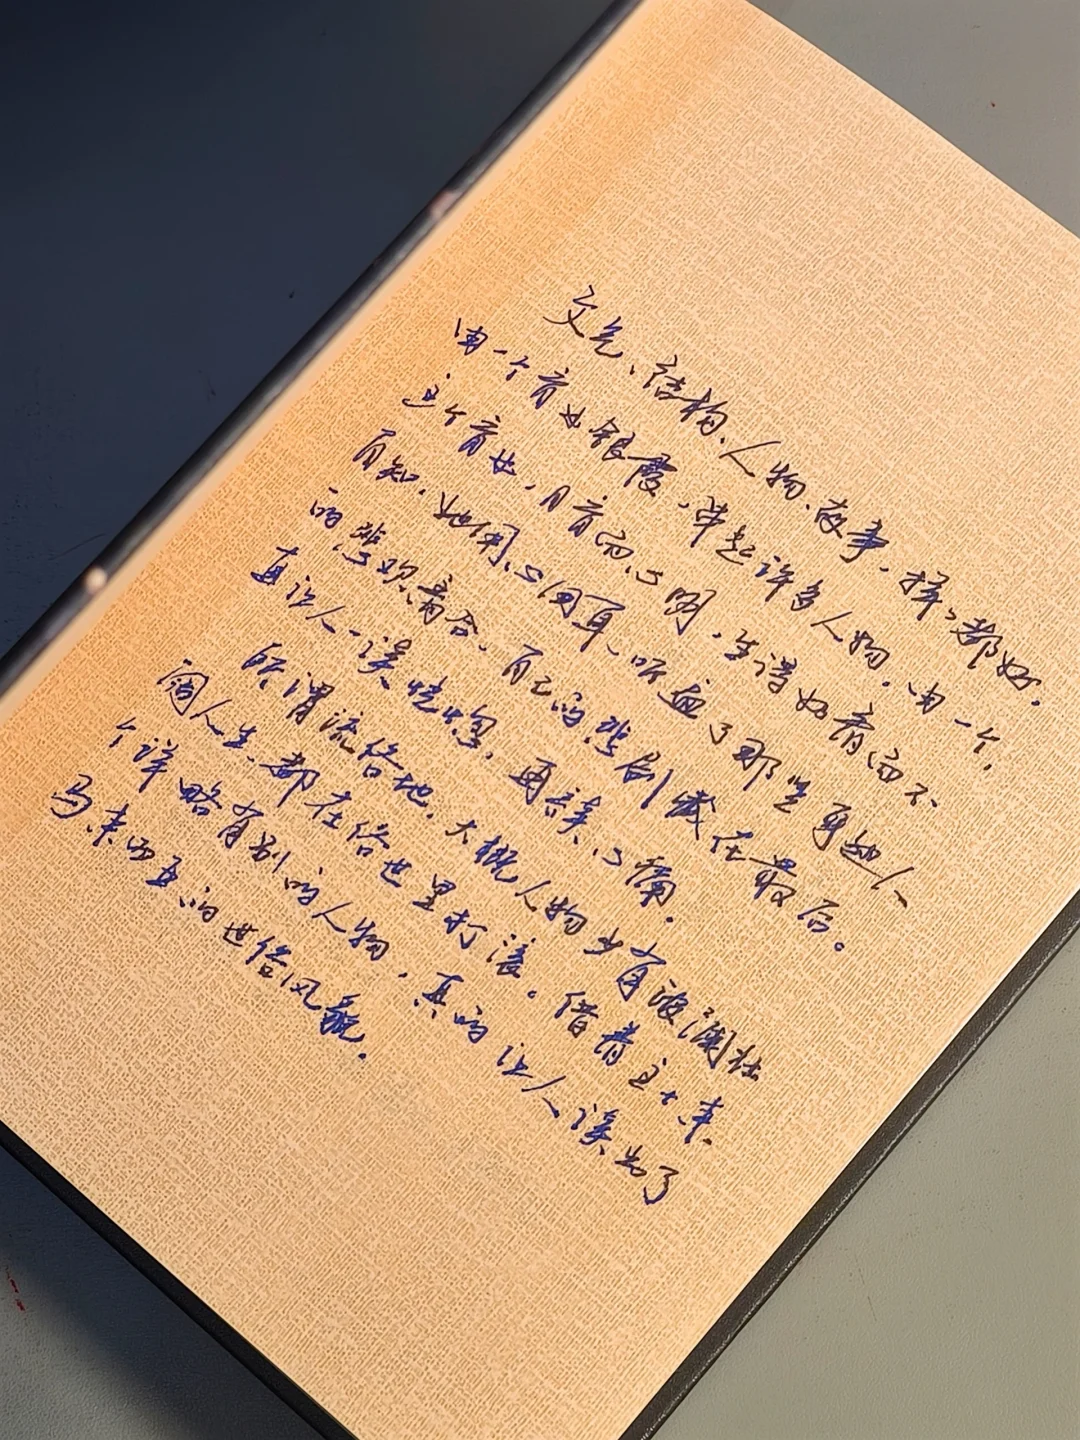 文气、结构、人物、故事，样样都好。
由一个盲女银霞，牵起许多人物。由一个
这个盲女，目盲而心明，生得好看而不
自知。她用心用耳、听遍了那些身边人
的悲欢离合，自己的悲剧藏在最后。
真让人一读恍惚，再读心痛。
所谓流俗地，大概人物少有波澜壮
阔人生，都在俗世里打滚。借着主十来
个详略有别的人物，真的让人读出了
马来西亚的世俗风貌。